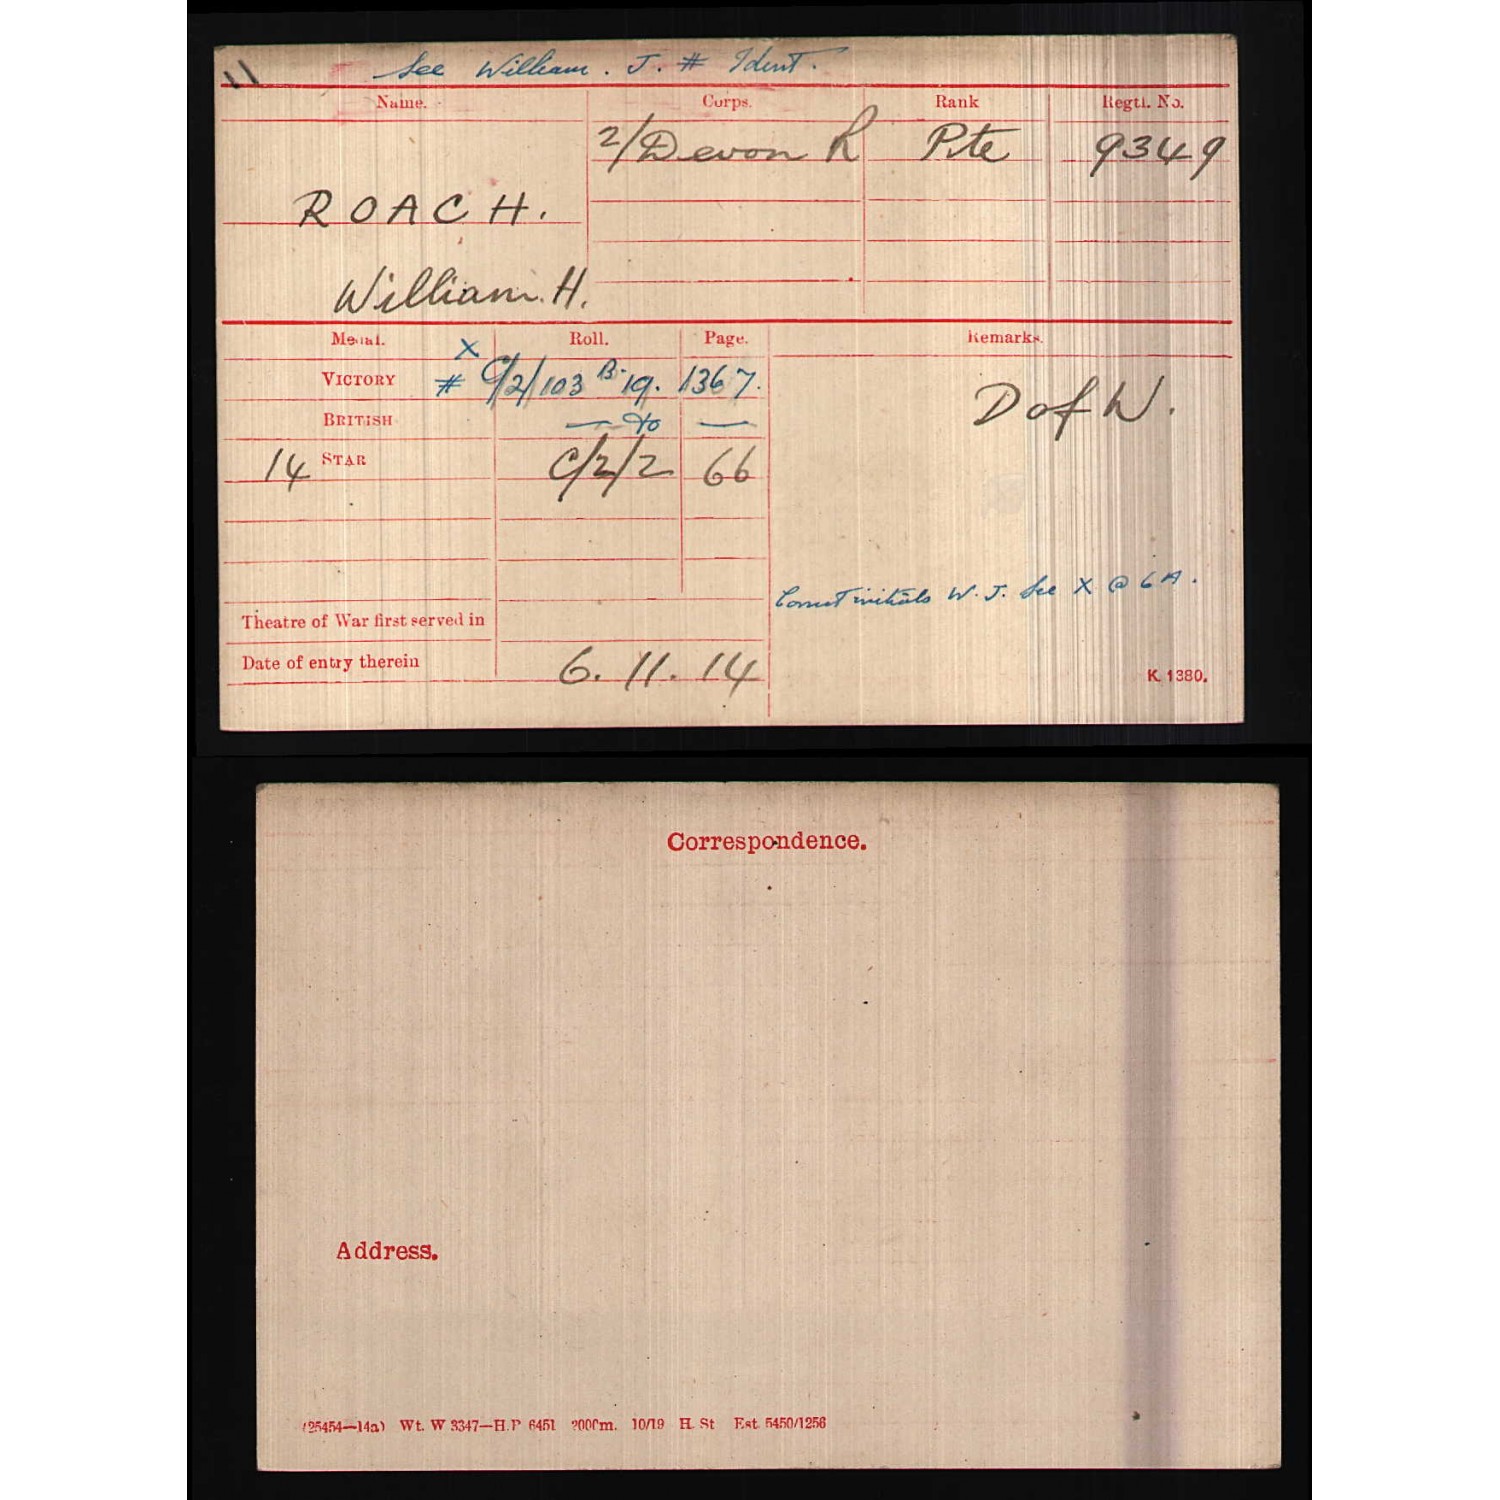 11 See William. J. # Ident.
Name. Corps. Rank Regtl. No.
2/Devon R Pte 9349
ROACH.
William. H.
Medal. Roll. Page. Remarks.
X
VICTORY # C/2/103 B.19. 1367.
BRITISH — do —
D of W.
14 STAR C/2/2 66
Correct initials W. J. See X @ 6A.
Theatre of War first served in
Date of entry therein 6. 11. 14
K. 1380.
Correspondence.
Address.
(25454—14a) Wt. W 3347—H.P 6451 200m. 10/19 H. St Est. 5450/1256